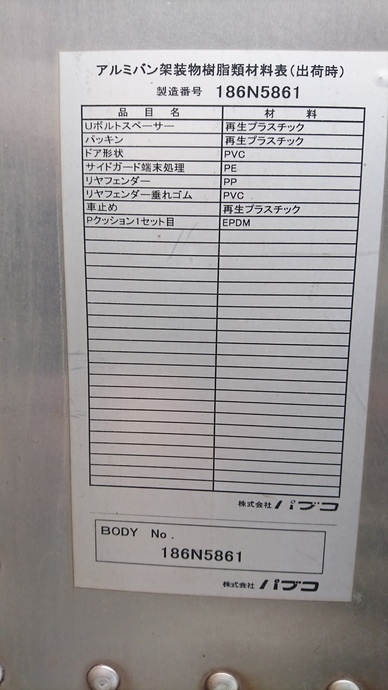 アルミバン架装物樹脂類材料表(出荷時)
製造番号 186N5861
品目名 材料
Uボルトスペーサー 再生プラスチック
パッキン 再生プラスチック
ドア形状 PVC
サイドガード端末処理 PE
リヤフェンダー PP
リヤフェンダー垂れゴム PVC
車止め 再生プラスチック
Pクッション1セット目 EPDM
株式会社 パブコ
BODY No.
186N5861
株式会社 パブコ